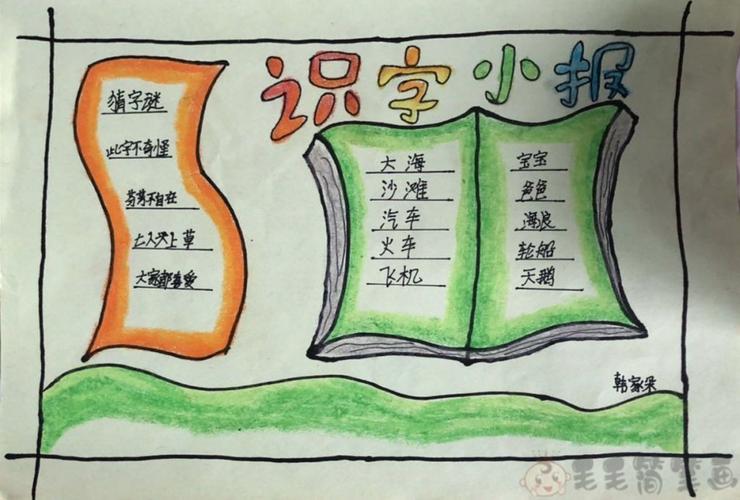 识字小报
猜字谜
此字不奇怪
不自在
七人头上草
大家都喜爱
大海
沙滩
汽车
火车
飞机
宝宝
爸爸
海浪
轮船
天鹅
韩家朵
毛毛简笔画